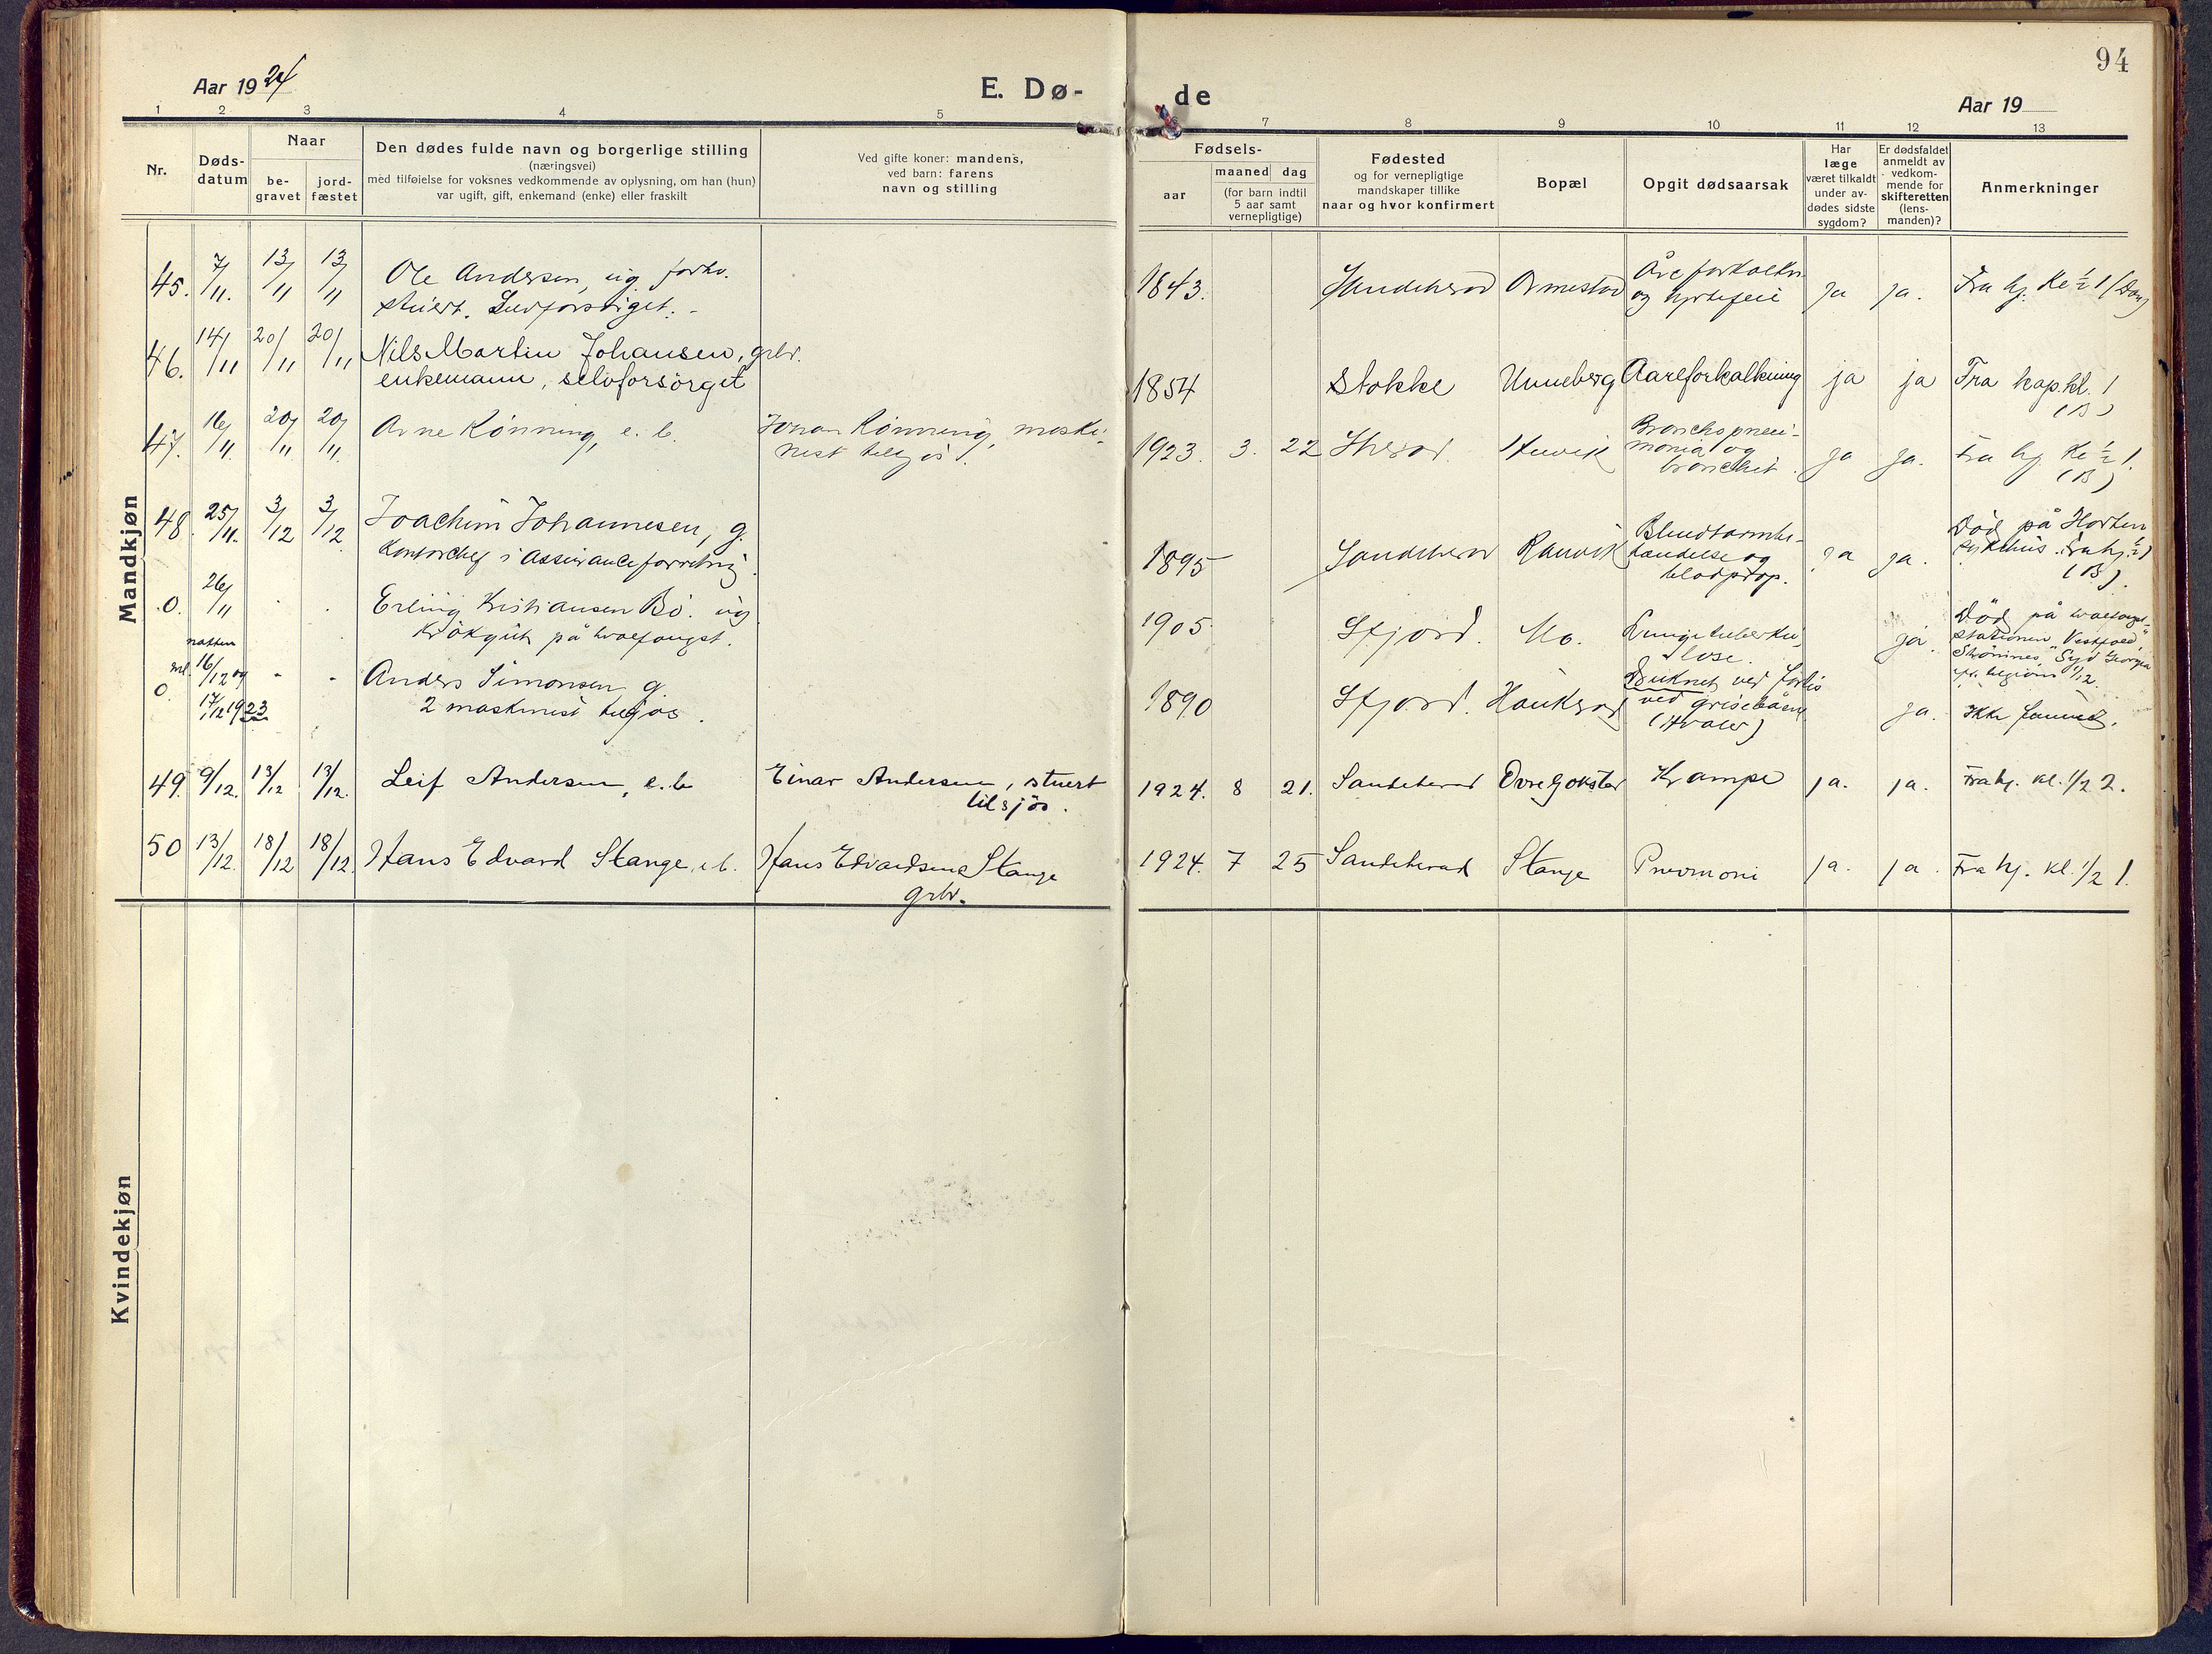 94
Aar 1924
E. Dø-
de
Aar 19
1 2 3 4 5 7 8 9 10 11 12 13
Nr.
Døds-
datum
Naar
be-
gravet
jord-
fæstet
Den dødes fulde navn og borgerlige stilling
(næringsvei)
med tilføielse for voksnes vedkommende av oplysning, om han (hun)
var ugift, gift, enkemand (enke) eller fraskilt
Ved gifte koner: mandens,
ved barn: farens
navn og stilling
Fødsels-
aar
maaned dag
(for barn indtil
5 aar samt
vernepligtige)
Fødested
og for vernepligtige
mandskaper tillike
naar og hvor konfirmert
Bopæl
Opgit dødsaarsak
Har
læge
været tilkaldt
under av-
dødes sidste
sygdom?
Er dødsfaldet
anmeldt av
vedkom-
mende for
skifteretten
(lens-
manden)?
Anmerkninger
Mandkjøn
45. 7/11. 13/11 13/11 Ole Andersen, ug. forhv.
stuert. Selvforsörget.
1843. Sandeherad Ormestad Åreforkalkn.
og hjertefeil ja ja. Fra hj. kl ½ 1
46. 14/11 20/11 20/11 Nils Martin Johansen, grbr.
enkemann, selvforsörget
1854 Stokke Unneberg Aareforkalkning ja ja Fra kap kl. 1
(B)
47. 16/11. 20/11 20/11. Arne Rönning, e. b. Johan Rönning, maski-
nist tilsjös.
1923. 3. 22 Sherad. Huvik Bronchopneu-
monia og
bronchit. ja ja. Fra hj. kl ½ 1.
(B)
48. 25/11. 3/12 3/12. Joachim Johannesen, g.
Kontorchef i Assuranceforretning.
1895 Sandeherad Ranvik Blindtarmbe-
tændelse og
blodprop. ja ja. Död på Horten
sykehus. Fra hj. ½ 1
(B).
0. 26/11 . . Erling Kristiansen Bö. ug
Krökgut på hvalfangst.
1905 Sfjord. Mo. Lungetuberku-
lose. ja. Död på hvalfangst-
stationen "Vestfold"
Strömnes, Syd Georgia
0. natten
ml. 16/12 og
17/12 1923 - - Anders Simonsen, g.
2 maskinist tilsjös.
1890 Sfjord. Haukerød Druknet ved forlis
ved grisebåene
(Hvaler) ja. Ikke funnet.
49. 9/12. 13/12 13/12. Leif Andersen, e. b Einar Andersen, stuert
tilsjös.
1924. 8 21. Sandeherad Övre Gokstad Krampe ja. ja. Fra hj. kl. 1/2 2.
50 13/12. 18/12 18/12. Hans Edvard Stange, e b. Hans Edvardsen Stange
grbr.
1924. 7 25 Sandeherad Stange Pneumoni ja. ja. Fra hj. kl. 1/2 1.
Kvindekjøn